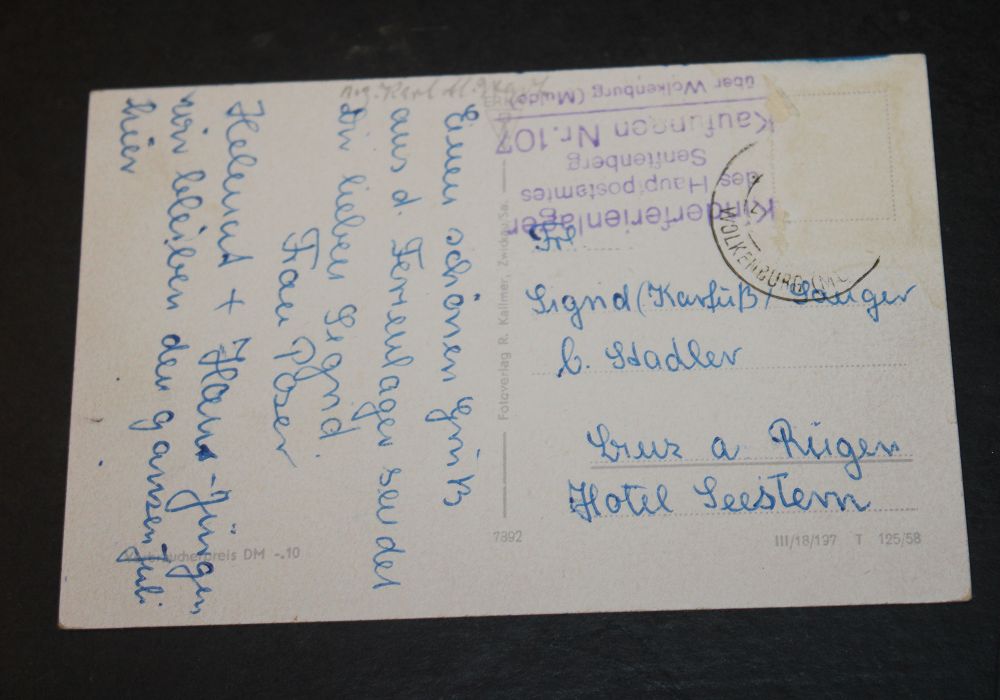 Einen schönen Gruß
aus d. Ferienlager sendet
Dir liebe Sigrid
Frau Poser
Helmut + Hans-Jürgen
wir bleiben den ganzen Juli
hier
Kinderferienlager
des Hauptpostamtes
Senftenberg
Kaufungen Nr. 107
über Wolkenburg (Mulde)
WOLKENBURG (MU
Frl.
Sigrid (Karfuß)
b. Stadler
a Rügen
Hotel Seestern
Fotoverlag R. Kallmer, Zwickau/Sa.
7392
Verbraucherpreis DM -.10
III/18/197 T 125/58